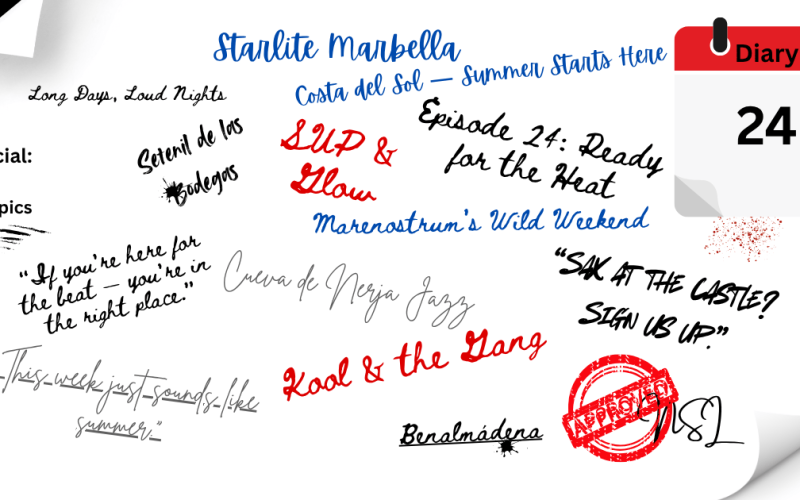 Starlite Marbella
Costa del Sol — Summer Starts Here
Diary
24
Long Days, Loud Nights
Setenil de las
Bodegas
SUP &
Glow
Episode 24: Ready
for the Heat
cial:
pics
Marenostrum's Wild Weekend
"If you're here for
the beat — you're in
the right place."
Cueva de Nerja Jazz
"SAX AT THE CASTLE?
SIGN US UP."
This week just sounds like
summer."
Kool & the Gang
Benalmádena
APPROVED
NSL